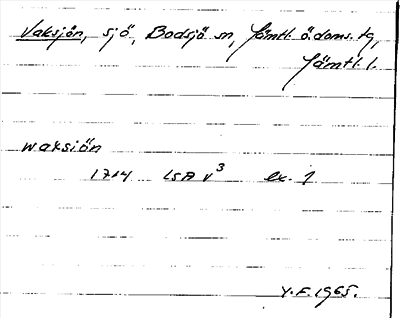 Vaksjön, sjö, Bodsjö sn, Jämtl. ö. doms. tg,
Jämtl. l.
waksiön
1714 LSA v³ ex. 1
Y.F. 1965.